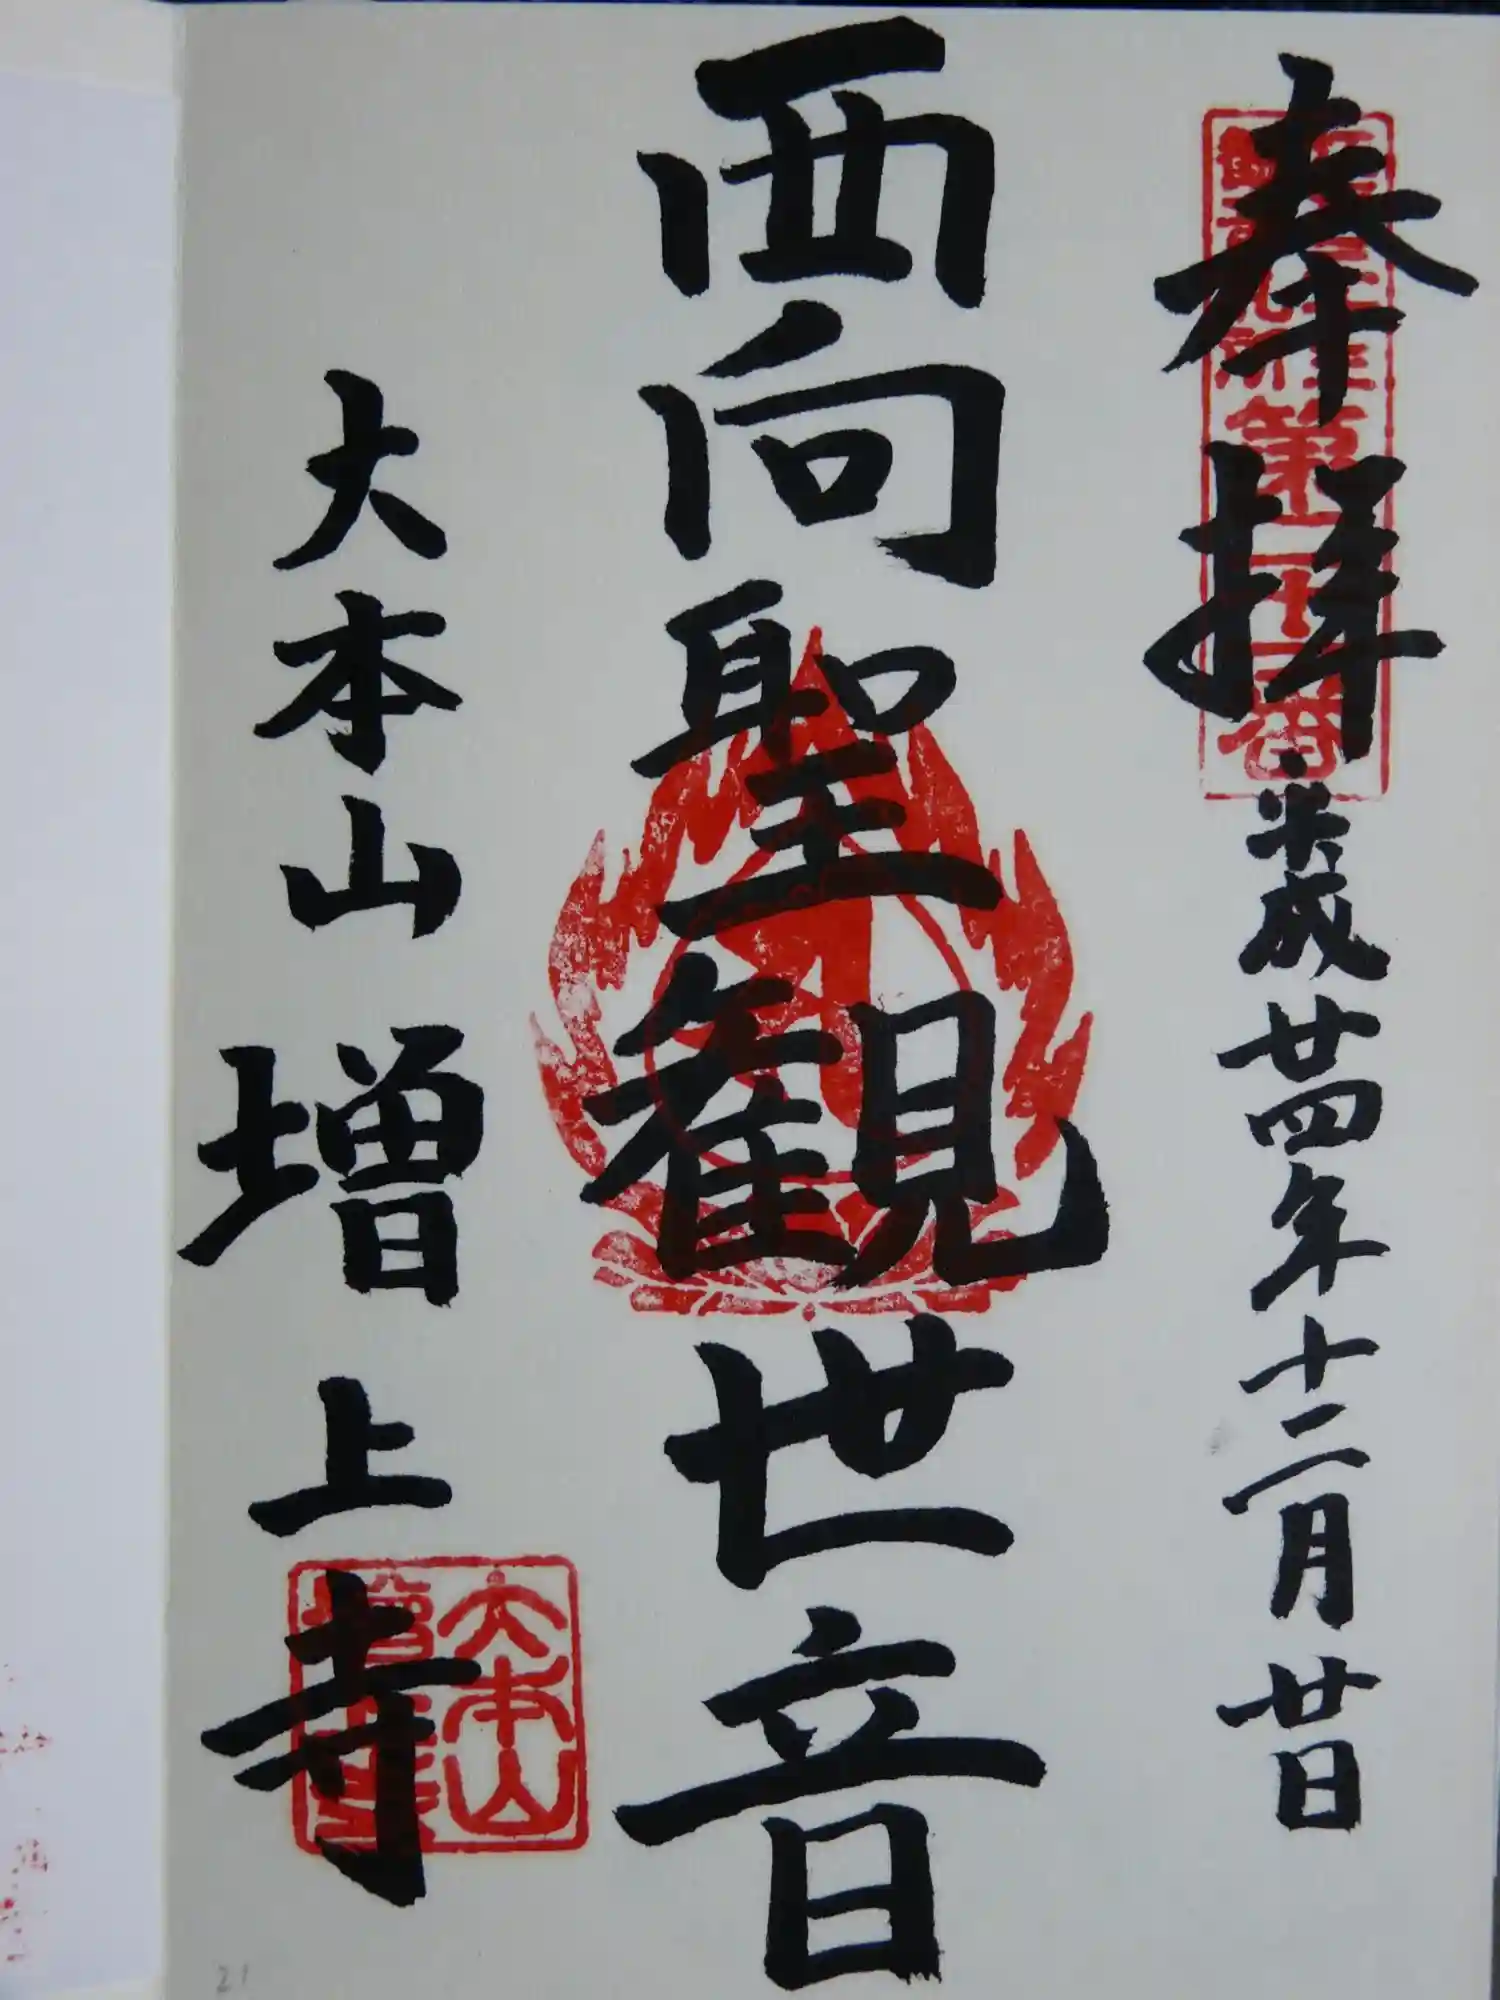 奉拝
平成廿四年十二月廿日
西向聖観世音
大本山 増上寺
大本山
21